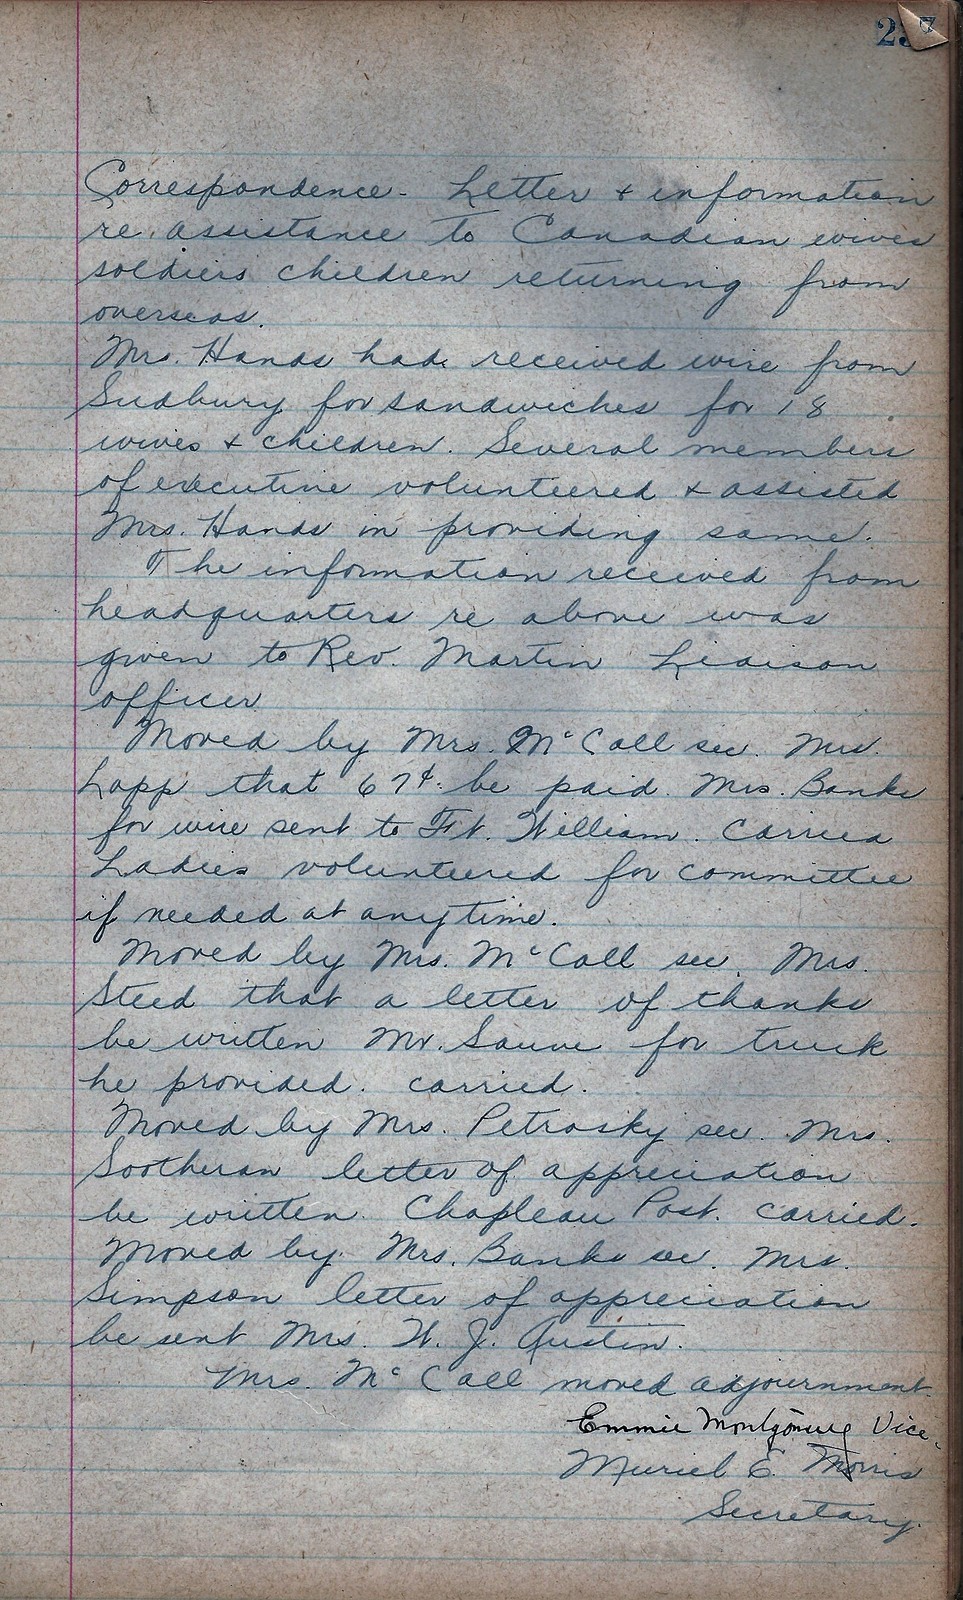 Correspondence - Letter & information
re assistance to Canadian wives
soldiers children returning from
overseas.
Mrs. Hands had received wire from
Sudbury for sandwiches for 18
wives & children. Several members
of executive volunteered & assisted
Mrs. Hands in providing same.
The information received from
headquarters re above was
given to Rev. Martin Liaison
officer
Moved by Mrs. McCall sec. Mrs.
Lapp that 67¢ be paid Mrs. Banks
for wire sent to Ft. William. Carried
Ladies volunteered for committee
if needed at anytime.
Moved by Mrs. McCall sec. Mrs.
Steed that a letter of thanks
be written Mr. Sauve for truck
he provided. carried.
Moved by Mrs. Petrosky sec. Mrs.
Sootheran letter of appreciation
be written Chapleau Post. carried.
Moved by Mrs. Banks sec. Mrs.
Simpson letter of appreciation
be sent Mrs. W. J. Austin.
Mrs. McCall moved adjournment.
Emmie Montgomery Vice.
Muriel E. Morris
Secretary.